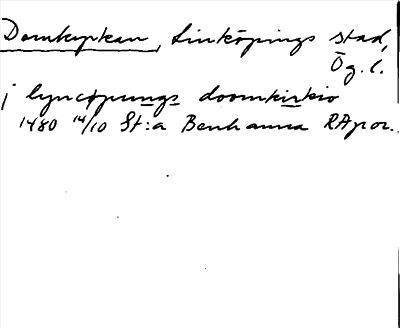 Domkyrkan, Linköpings stad,
Ög.l.
j lyncøpungs doomkirkio
1480 14/10 St:a Benhamra RAp or.